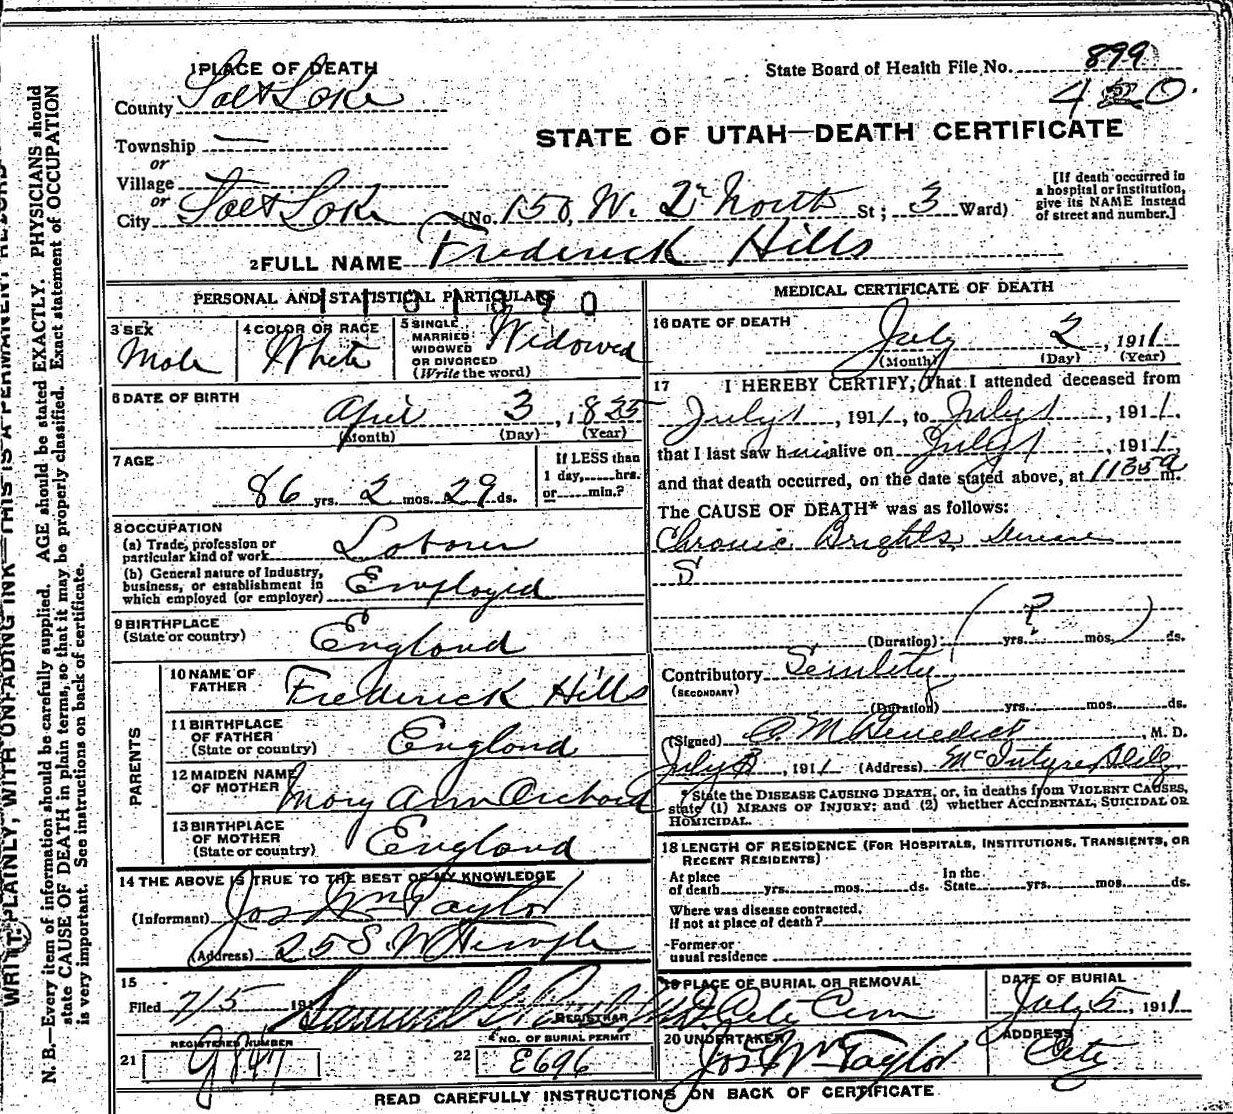 1 PLACE OF DEATH
County Salt Lake
Township —
or
Village —
or
City Salt Lake (No. 150 W. 2nd North St; 3 Ward)
State Board of Health File No. 899
420.
STATE OF UTAH—DEATH CERTIFICATE
[If death occurred in
a hospital or institution,
give its NAME instead
of street and number.]
2 FULL NAME Frederick Hills
PERSONAL AND STATISTICAL PARTICULARS
1101890
3 SEX
Male
4 COLOR OR RACE
White
5 SINGLE
MARRIED
WIDOWED
OR DIVORCED
(Write the word)
Widowed
6 DATE OF BIRTH
April 3, 1825
(Month) (Day) (Year)
7 AGE
86 yrs. 2 mos. 29 ds.
If LESS than
1 day,......hrs.
or......min.?
8 OCCUPATION
(a) Trade, profession or
particular kind of work Laborer
(b) General nature of Industry,
business, or establishment in
which employed (or employer) Employed
9 BIRTHPLACE
(State or country) England
PARENTS
10 NAME OF
FATHER Frederick Hills
11 BIRTHPLACE
OF FATHER
(State or country) England
12 MAIDEN NAME
OF MOTHER Mary Ann Orchard
13 BIRTHPLACE
OF MOTHER
(State or country) England
14 THE ABOVE IS TRUE TO THE BEST OF MY KNOWLEDGE
(Informant) Jos Wm Taylor
(Address) 25 S. W Temple
15
Filed 7/5 191
REGISTRAR
REGISTERED NUMBER
21
22
NO. OF BURIAL PERMIT
E696
MEDICAL CERTIFICATE OF DEATH
16 DATE OF DEATH
July 2, 1911
(Month) (Day) (Year)
17 I HEREBY CERTIFY, That I attended deceased from
July 1, 1911, to July 1, 1911.
that I last saw him alive on July 1, 1911.
and that death occurred, on the date stated above, at 1135 a m.
The CAUSE OF DEATH* was as follows:
Chronic Brights Disease
S
(Duration) ( ? yrs. mos. ) ds.
Contributory Senility
(SECONDARY)
(Duration) yrs. mos. ds.
(Signed) C M Benedict, M. D.
July 3, 1911 (Address) McIntyre Bldg
* State the DISEASE CAUSING DEATH, or, in deaths from VIOLENT CAUSES,
state (1) MEANS OF INJURY; and (2) whether ACCIDENTAL, SUICIDAL OR
HOMICIDAL.
18 LENGTH OF RESIDENCE (FOR HOSPITALS, INSTITUTIONS, TRANSIENTS, OR
RECENT RESIDENTS)
At place
of death......yrs......mos......ds.
In the
State......yrs......mos......ds.
Where was disease contracted,
if not at place of death?
Former or
usual residence
19 PLACE OF BURIAL OR REMOVAL
City Cem
DATE OF BURIAL
July 5, 1911
20 UNDERTAKER
Jos Wm Taylor
ADDRESS
City
READ CAREFULLY INSTRUCTIONS ON BACK OF CERTIFICATE
WRITE PLAINLY, WITH UNFADING INK—THIS IS A PERMANENT RECORD
N. B.—Every item of information should be carefully supplied. AGE should be stated EXACTLY. PHYSICIANS should
state CAUSE OF DEATH in plain terms, so that it may be properly classified. Exact statement of OCCUPATION
is very important. See instructions on back of certificate.